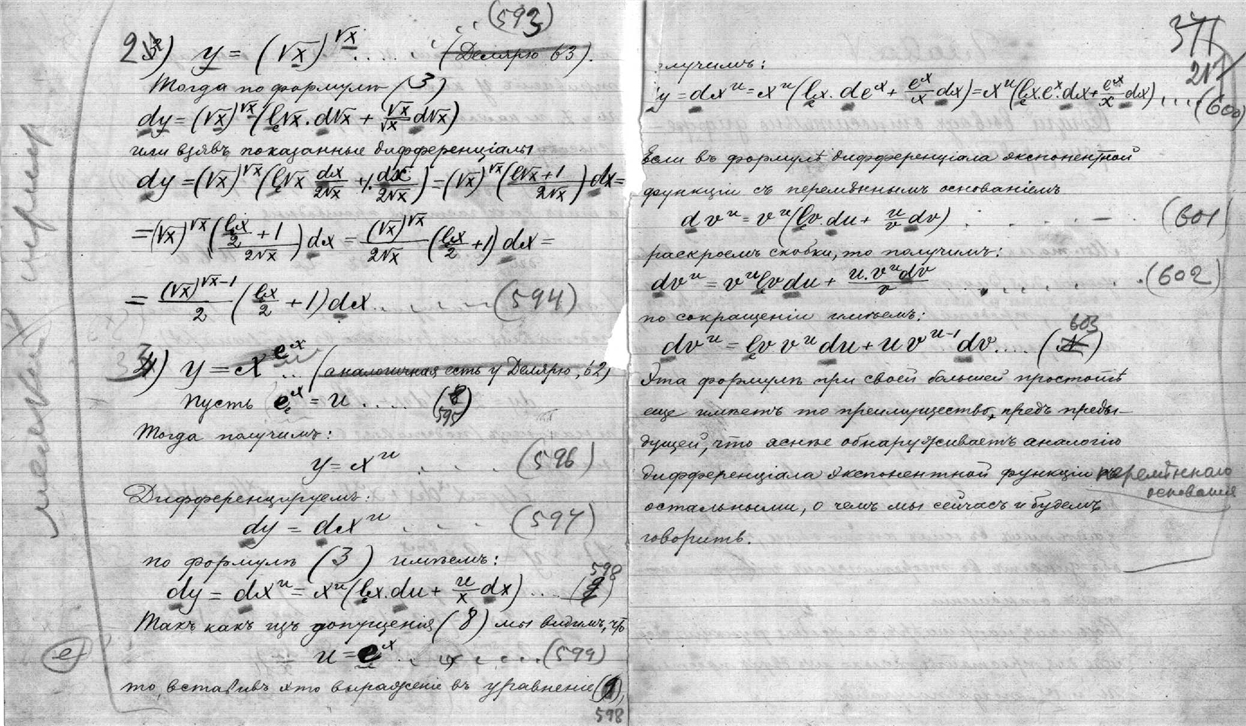 (593)
2) y = (√x)^√x .... (Делярю 63).
Тогда по формулѣ (3)
dy = (√x)^√x (l√x . d√x + √x/√x d√x)
или взявъ показанные дифференціалы
dy = (√x)^√x (l√x dx/2√x + dx/2√x) = (√x)^√x (l√x + 1/2√x) dx =
= (√x)^√x (lx/2 + 1/2√x) dx = (√x)^√x/2√x (lx/2 + 1) dx =
= (√x)^√x-1/2 (lx/2 + 1) dx ...... (594)
3) y = x^e^x ... (аналогичная есть у Делярю, 62)
Пусть e^x = u .... (8)
595
Тогда получимъ:
y = x^u .... (596)
Дифференцируемъ:
dy = dx^u .... (597)
по формулѣ (3) имѣемъ:
598
dy = dx^u = x^u (lx . du + u/x dx) ....
Такъ какъ изъ допущенія (8) мы видимъ, что
u = e^x ...... (599)
то, вставивъ это выраженіе въ уравненіе
598
мелкий шрифт
е
377
217
лучимъ:
y = dx^u = x^u (lx . de^x + e^x/x dx) = x^u (lx e^x . dx + e^x/x dx) .... (600)
Если въ формулѣ дифференціала экспонентной
функціи съ перемѣннымъ основаніемъ
dv^u = v^u (lv du + u/v dv) .... (601)
раскроемъ скобки, то получимъ:
dv^u = v^u lv du + u . v^u dv/v .... (602)
по сокращеніи имѣемъ:
603
dv^u = lv v^u du + u v^u-1 dv ....
Эта формула при своей большей простотѣ
еще имѣетъ то преимущество предъ преды-
дущей, что яснѣе обнаруживаетъ аналогію
дифференціала экспонентной функціи перемѣннаго
основанія
остальными, о чемъ мы сейчасъ и будемъ
говорить.